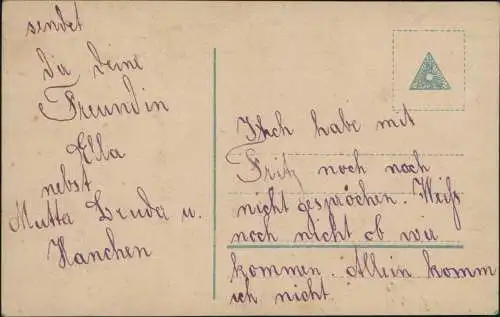 sendet
dir deine
Freundin
Ella
nebst
Mutta Truda u.
Hanchen
Ich habe mit
Fritz noch noch
nicht gesprochen. Weiß
noch nicht ob wir
kommen. Allein komm
ich nicht.